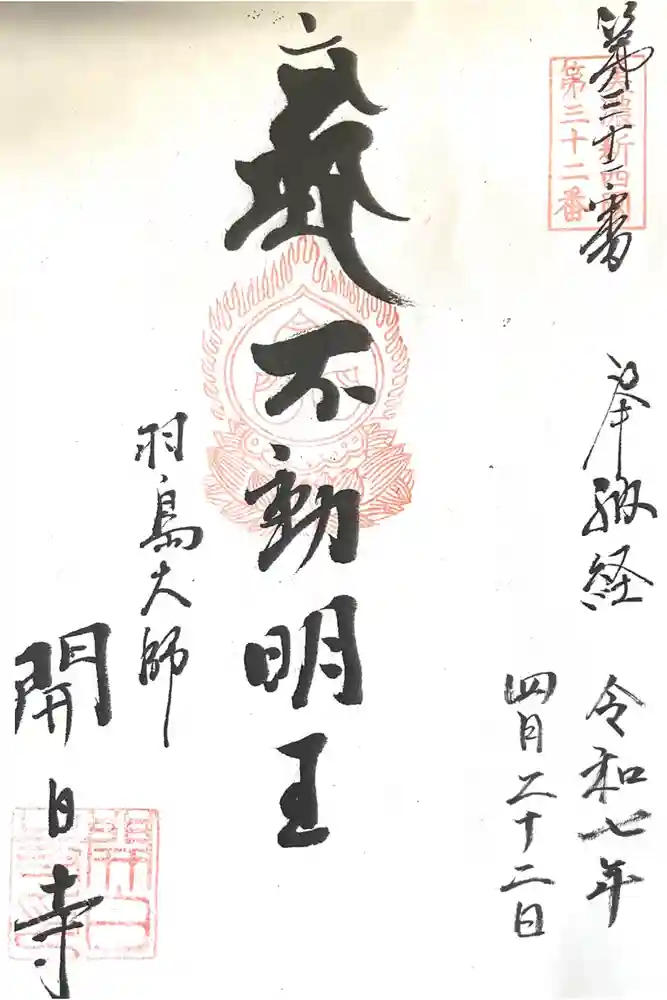 第三十二番
美濃新四国
第三十二番
奉納経
令和七年
四月二十二日
不動明王
羽島大師
開白寺